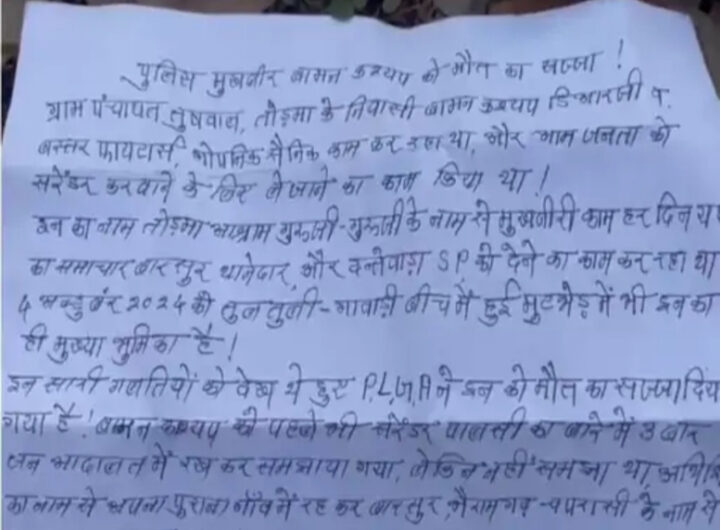 पुलिस मुखबीर बामन कश्यप को मौत का सज्जा !
ग्राम पंचायत तुषवाल, तोड़मा के निवासी बामन कश्यप डिआरजी व.
बस्तर फायटार्स, गोपनिक सैनिक काम कर रहा था, और आम जनता को
सरेंडर करवाने के लिए ले जाने का काम किया था !
इन का नाम तोड़मा आश्राम गुरूजी-गुरूजी के नाम से मुखबीरी काम हर दिन घर
का समाचार बारसुर थानेदार, और दन्तेवाड़ा SP को देने का काम कर रहा था
4 अक्टुबंर 2024 की तुलतुली-गावाड़ी बीच में हुई मुटभेड़ में भी इन का
ही मुख्या भुमिका है !
इन सारी गलतियों को देख थे हुए P.L.G.A ने इन को मौत का सज्जा दिय
गया है ! बामन कश्यप को पहले भी सरेंडर पालसी का बारे में 3 बार
जन आदालत में रख कर समझाया गया, लेकिन नहीं समझा था,
का नाम से अपना पुराना गाँव में रह कर बारसुर, भैरामगढ़ - चपरासी के नाम से